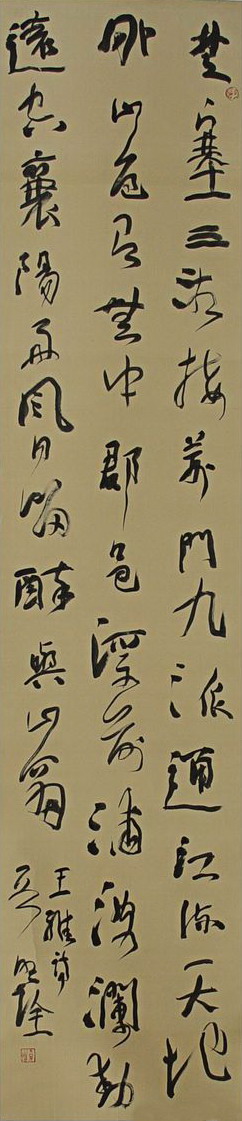 楚塞三湘接荊門九派通江流天地
外山色有無中郡邑浮前浦波瀾動
遠空襄陽好風日留醉與山翁
王維詩